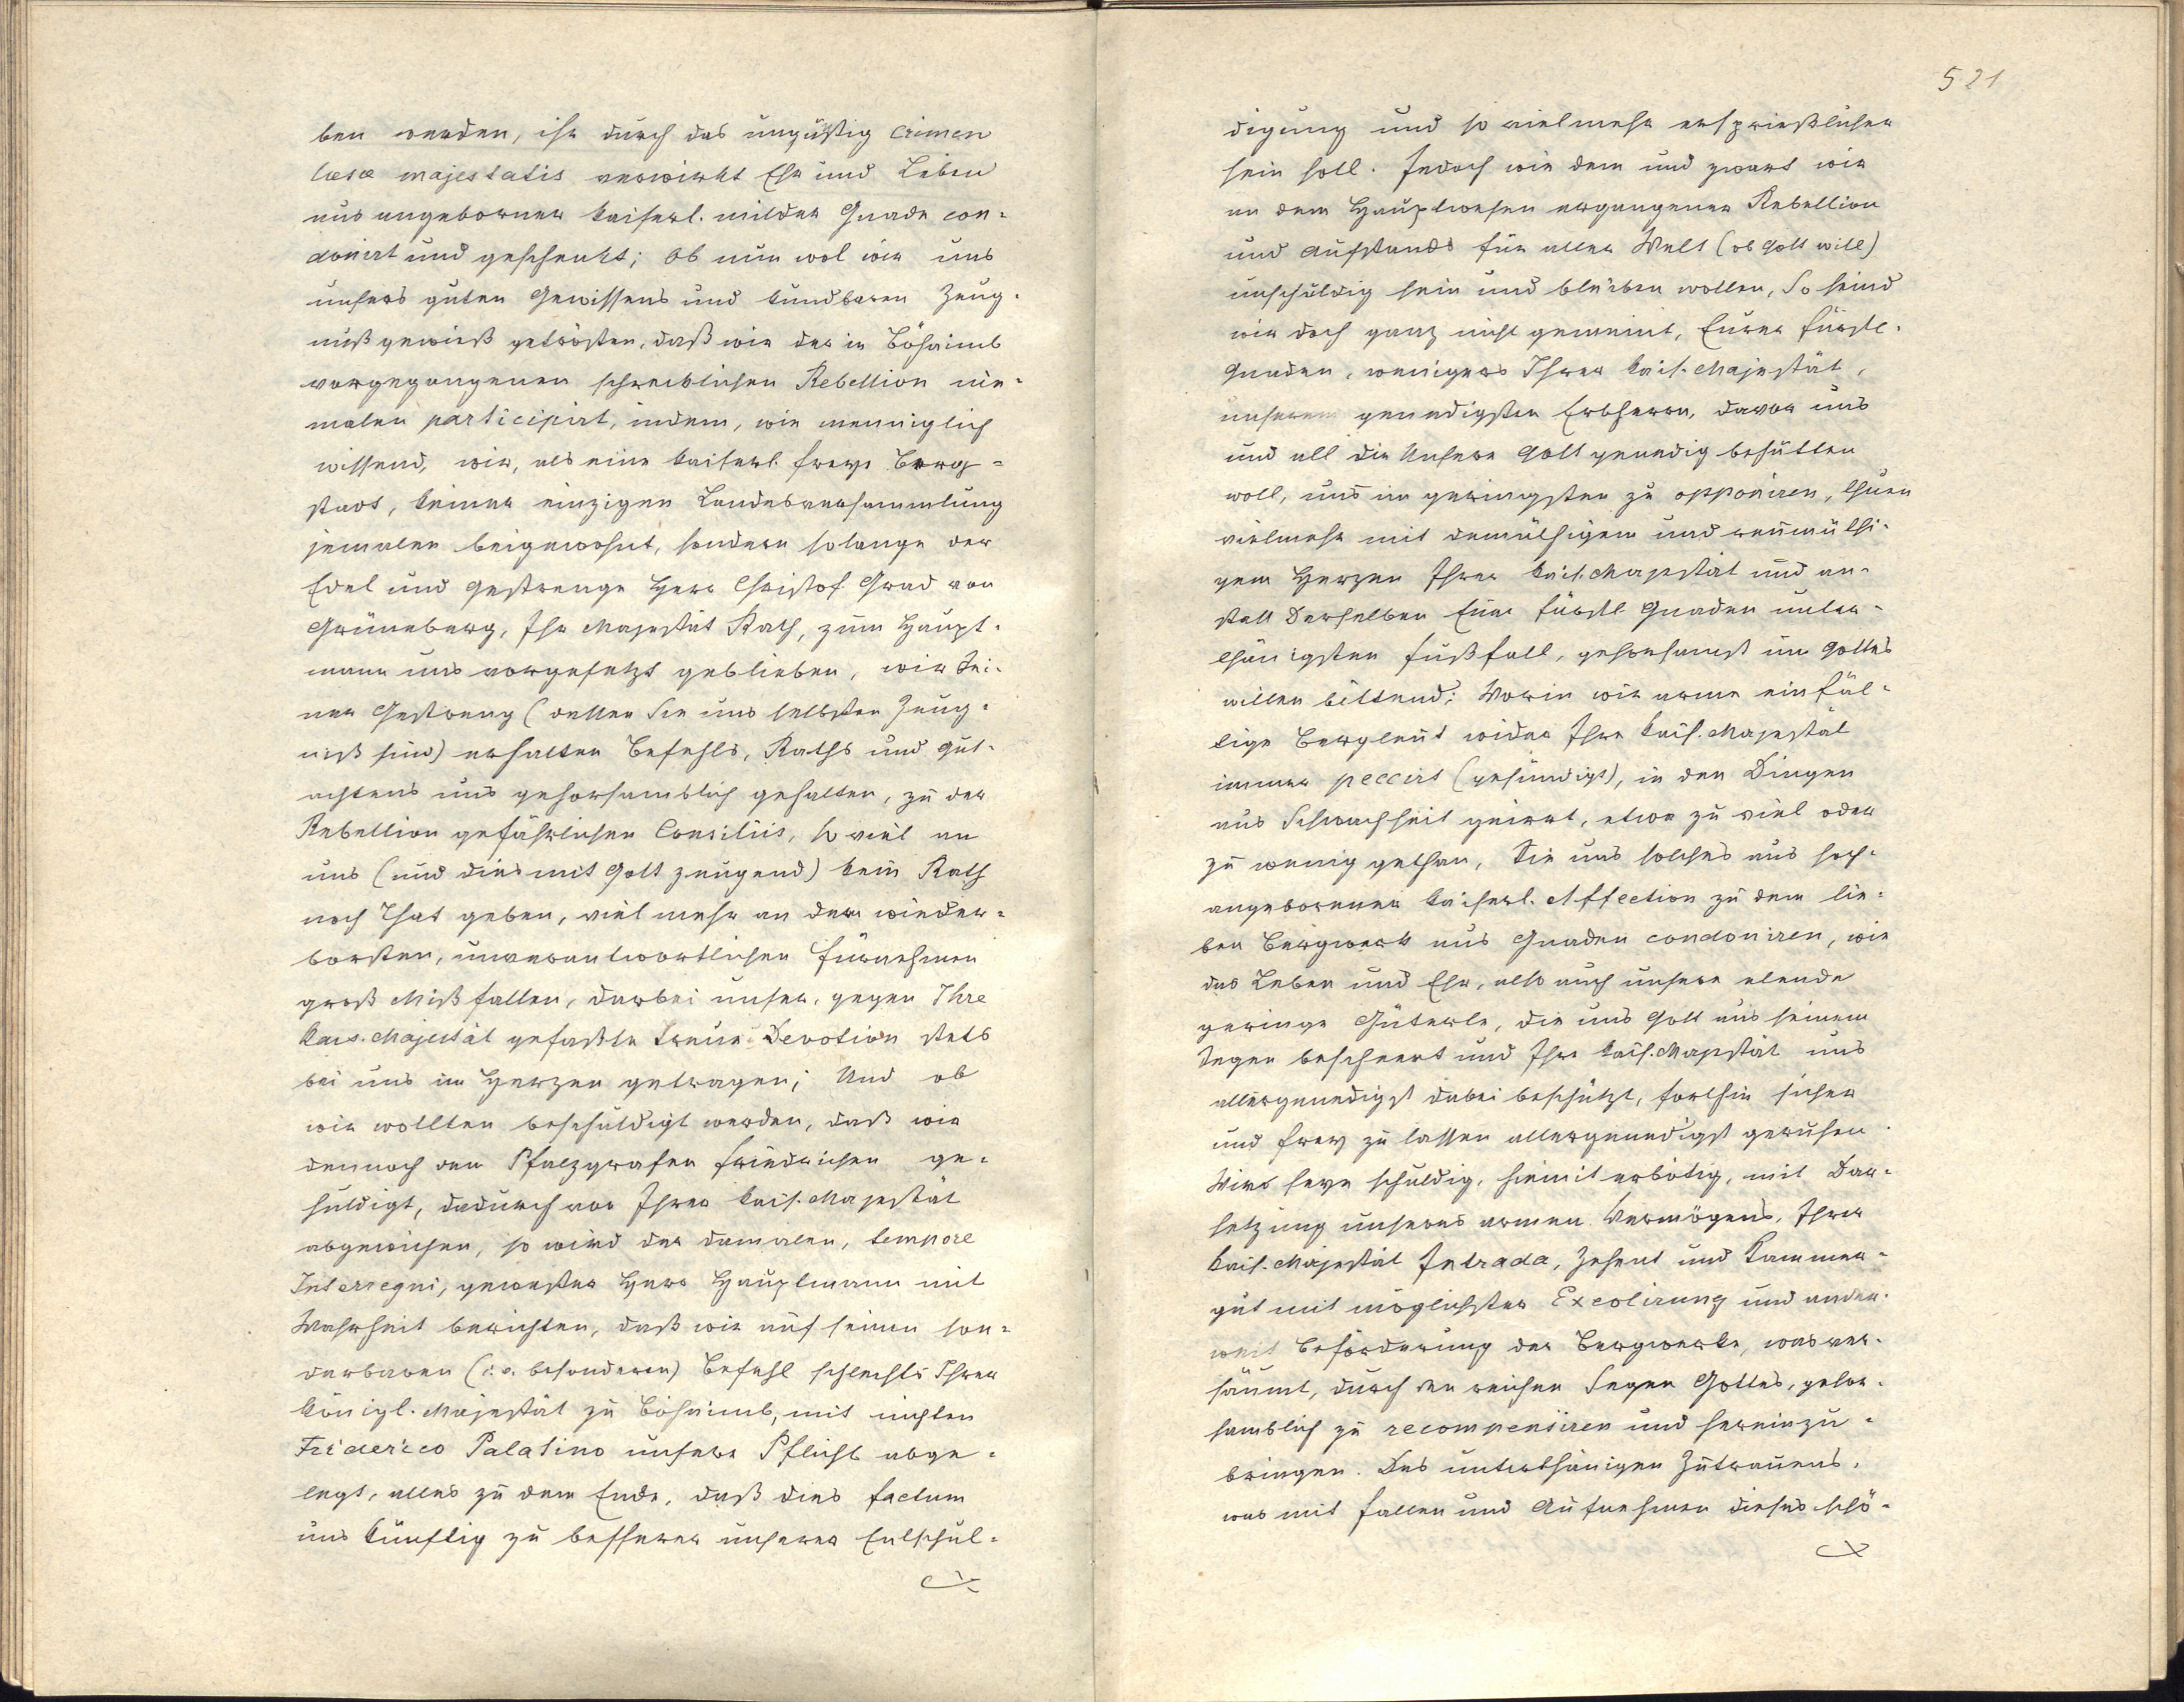 ben werden, ihr durch das ungüstig crimen
læsæ majestatis verwirkt Ehr und Leben
aus angeborner kaiserl. milder Gnade con-
donirt und geschenkt; Ob nun wol wir uns
unsers guten Gewissens und kundbaren Zeug-
nuß gewieß getrösten, daß wir der in Böhaimb
vorgegangenen schrecklichen Rebellion nie-
malen participirt, indem, wie menniglich
wissend, wir, als eine kaiserl. freye Berg-
stadt, keiner einzigen Landesversammlung
jemalen beigewohnt, sondern solange der
Edel und gestrenge Herr Christof Grad von
Grüneberg, Ihr Majestät Rath, zum Haupt-
mann uns vorgesetzt geblieben, wir Sei-
ner Gestreng (dessen Sie uns selbsten Zeug-
niß sind) erhalten Befehls, Raths und gut-
achtens uns gehorsamblich gehalten, zu der
Rebellion gefährlichen Consiliis, so viel an
uns (und dies mit Gott zeugend) kein Rath
noch That geben, viel mehr an dem wieder-
borsten, unverantwortlichen fürnehmen
groß Mißfallen, darbei unser, gegen Ihre
kais. Majestät gefaßte treue Devotion stets
bei uns im Herzen getragen; Und ob
wir wollten beschuldigt werden, daß wir
dennoch den Pfalzgrafen Friedrichen ge-
huldigt, dadurch vor Ihrer kais. Majestät
abgewichen, so wird der damalen, tempore
Interregni, gewester Herr Hauptmann mit
Wahrheit berichten, daß wir auf seinen son-
derbaren (i. e. besonderen) Befehl schlechts Ihrer
königl. Majestät zu Böhaimb, mit nichten
Friderico Palatino unsere Pflicht abge-
legt, alles zu dem Ende, daß dies factum
uns künftig zu besserer unserer Entschul-
521
digung und so vielmehr ersprießlicher
sein soll. Jedoch wie dem und zwart wir
an dem Hauptwesen ergangener Rebellion
und Aufstands für aller Welt (ob Gott will)
unschuldig sein und bleiben wollen, So seind
wir doch ganz nicht gemeint, Eurer fürstl.
Gnaden, wenigers Ihrer kais. Majestät,
unserem genedigsten Erbherrn, davor uns
und all die Unsere Gott genedig behütten
woll, uns im geringsten zu opponiren, thuen
vielmehr mit demüthigem und reumüthi-
gem Herzen Ihrer kais. Majestät und an-
statt Derselben Eurer fürstl. Gnaden unter-
thänigsten Fußfall, gehorsamst um Gottes
willen bittend: Worin wir arme einfäl-
tige Bergleut wider Ihre kais. Majestät
immer peccirt (gesündigt), in den Dingen
aus Schwachheit geirrt, etwa zu viel oder
zu wenig gethan, Sie uns solches aus hoch-
angeborener kaiserl. Affection zu dem lie-
ben Bergwerk aus Gnaden condoniren, wie
das Leben und Ehr, also auch unsere elende
geringe Güterle, die uns Gott aus seinem
Segen bescheert und Ihre kais. Majestät uns
allergenedigst dabei beschützt, forthin sicher
und frey zu lassen allergenedigst geruhen.
Wirs seye schuldig, hiemit erbötig, mit Dar-
setzung unseres armen Vermögens, Ihrer
kais. Majestät Intrada, Zehent und Kammer-
gut mit möglichster Excolirung und ander-
weit Beförderung der Bergwerke, was ver-
säumt, durch den reichen Segen Gottes, gehor-
samblich zu recompensiren und hereinzu-
bringen. Das unterthänigen Zutrauens,
was mit fallen und Aufnehmen dieses schö-